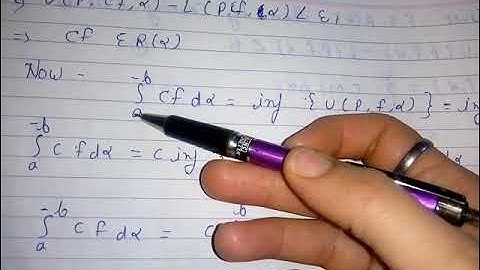 U(P, cf, α) - L(P, cf, α) < ε,
=> cf ε R(α)
Now - ∫ₐ⁻ᵇ cf dα = inf {U(P, f, α)} = inf
∫ₐ⁻ᵇ c f dα = c inf
∫ₐ⁻ᵇ c f dα = c